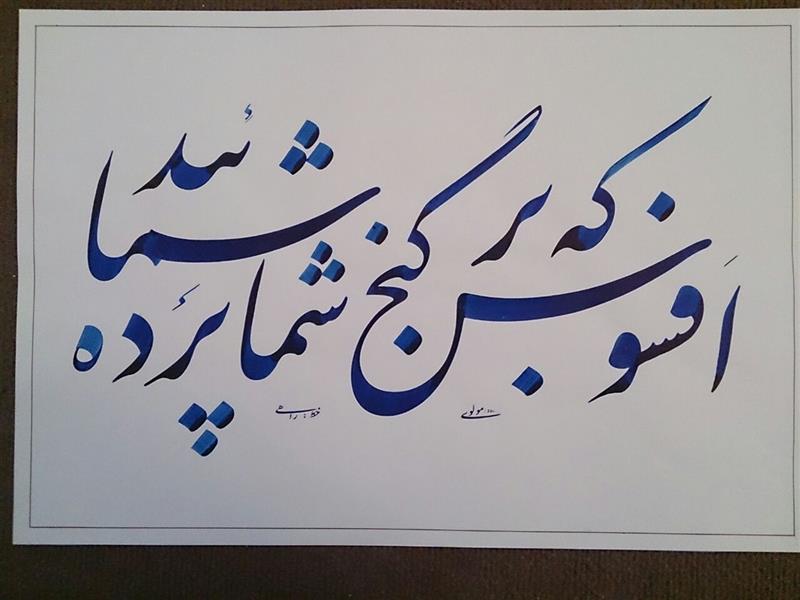 اَفسوس که بر گنج شما پَرده شمائید
مولوی
خط: